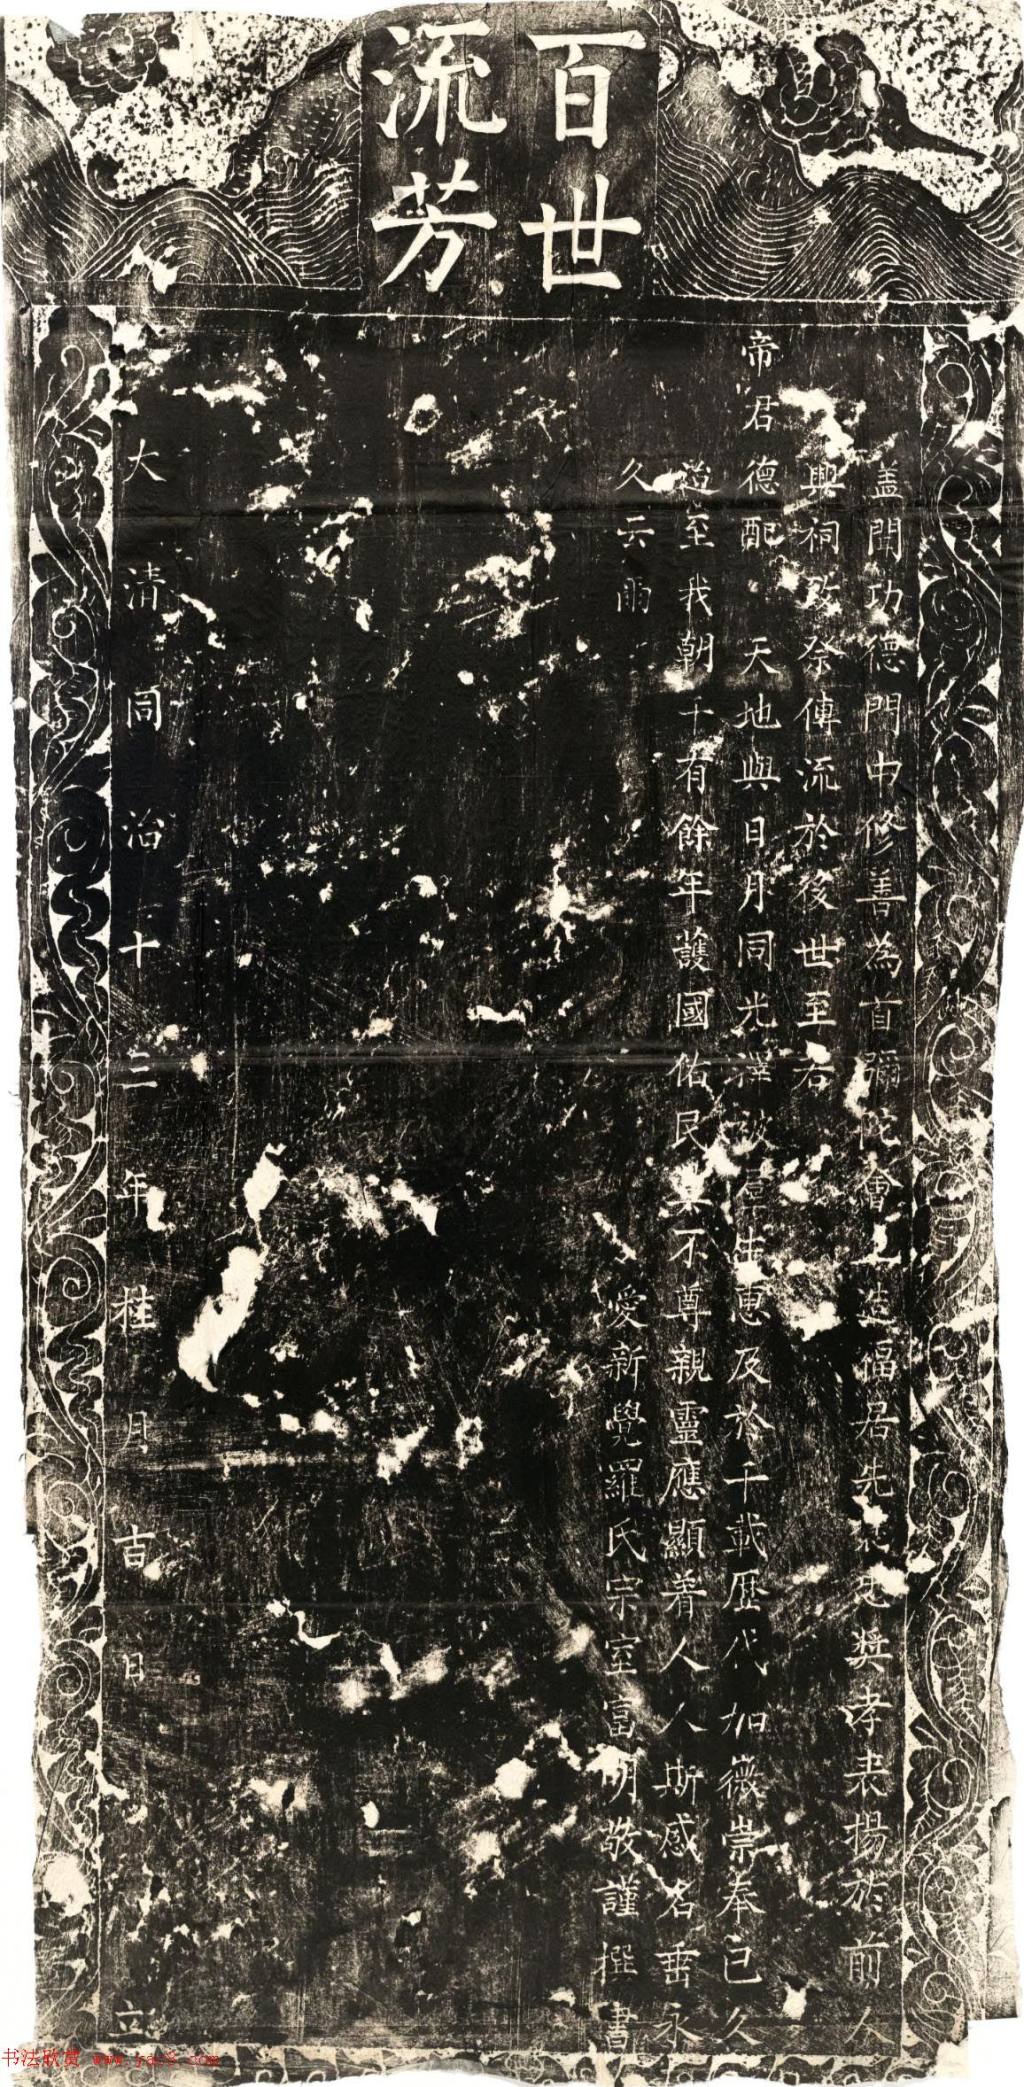 百世
流芳
蓋聞功德門中修善為首彌陀會上造福居先
獎孝表揚於前人
興祠改祭傳流於後世至若
帝君德配天地與日月同光澤
惠及於千載歷代加徽崇奉已久
道至我朝十有餘年護國佑民莫不尊親靈應顯着人人斯感名垂永
久云爾
愛新覺羅氏宗室富明敬謹撰書
大清同治十三年桂月吉日立
书法欣赏 www.yac8.com